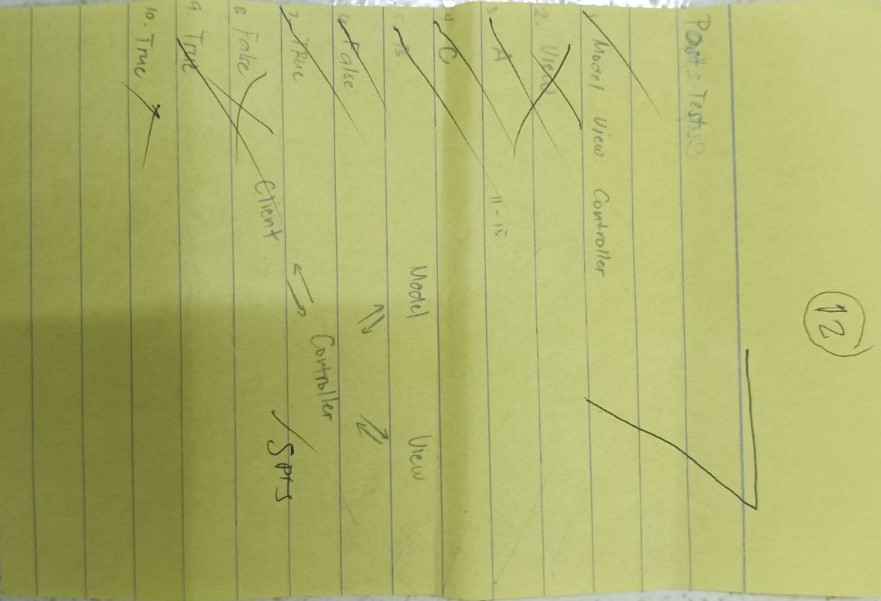 12
7
Post Test
1. Model View Controller
2. View
3. A
4. C
5. B
6. False
7. TRue
8. False
9. True
10. True
11-15
Model View
Controller
Client
5pts